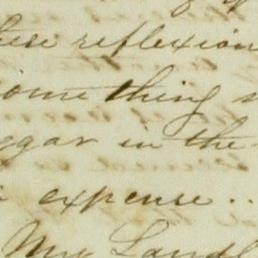 these reflexion
something s
ggar in the
expense..
My Landl